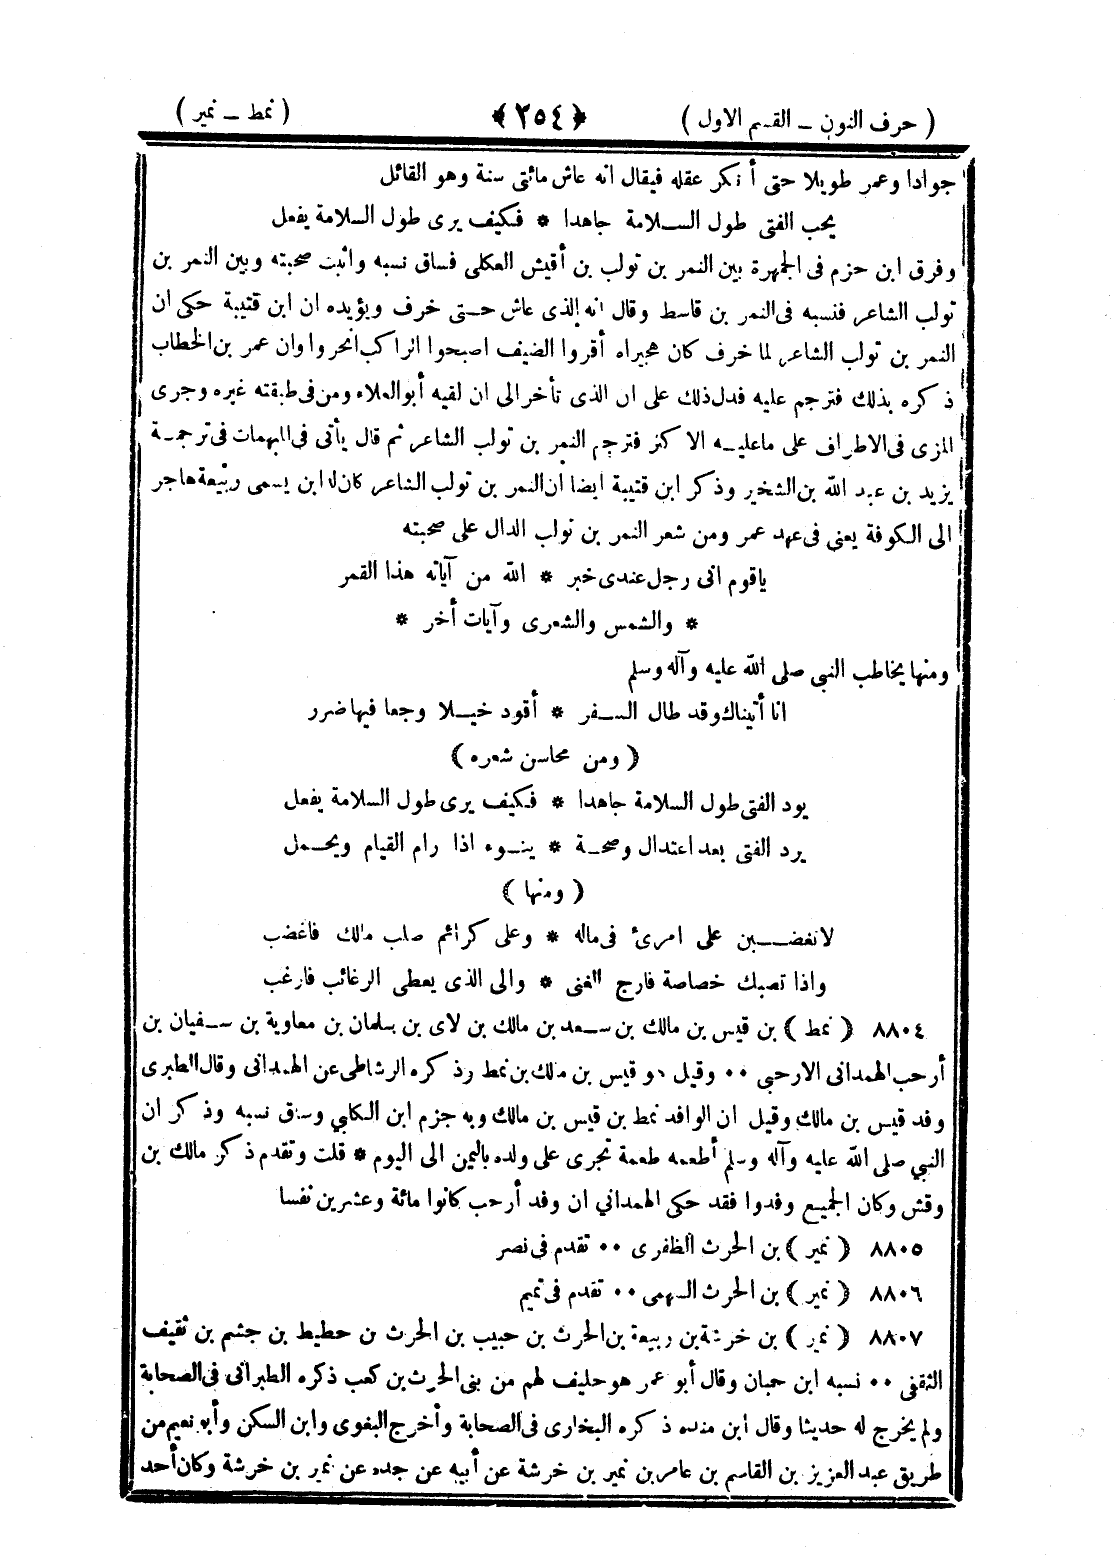 ( حرف النون – القسم الاول ) ﴿٢٥٤﴾ ( نمط – نمير )
جوادا وعمر طويلا حتى أنكر عقله فيقال انه عاش مائتى سنة وهو القائل
يحب الفتى طول السلامة جاهدا * فكيف يرى طول السلامة يفعل
وفرق ابن حزم فى الجمهرة بين النمر بن تولب بن أقيش العكلى فساق نسبه واثبت صحبته وبين النمر بن
تولب الشاعر فنسبه فى النمر بن قاسط وقال انه الذى عاش حتى خرف ويؤيده ان ابن قتيبة حكى ان
النمر بن تولب الشاعر لما خرف كان هجيراه أقروا الضيف اصبحوا الراكب انحروا وان عمر بن الخطاب
ذكره بذلك فترجم عليه فدل ذلك على ان الذى تأخر الى ان لقيه أبو العلاء ومن فى طبقته غيره وجرى
المزى فى الاطراف على ماعليه الاكثر فترجم النمر بن تولب الشاعر ثم قال يأتى فى المبهمات فى ترجمة
يزيد بن عبد الله بن الشخير وذكر ابن قتيبة ايضا ان النمر بن تولب الشاعر كان له ابن يسمى ربيعة هاجر
الى الكوفة يعنى فى عهد عمر ومن شعر النمر بن تولب الدال على صحبته
ياقوم انى رجل عندى خبر * الله من آياته هذا القمر
* والشمس والشعرى وآيات أخر *
ومنها يخاطب النبي صلى الله عليه وآله وسلم
انا أتيناك وقد طال السفر * أقود خيلا وجعا فيها ضرر
( ومن محاسن شعره )
يود الفتى طول السلامة جاهدا * فكيف يرى طول السلامة يفعل
يرد الفتى بعد اعتدال وصحة * ينوء اذا رام القيام ويحمل
( ومنها )
لاتغضبن على امرئ فى ماله * وعلى كرائم صلب مالك فاغضب
واذا تصبك خصاصة فارج الغنى * والى الذى يعطى الرغائب فارغب
٨٨٠٤ ( نمط ) بن قيس بن مالك بن سعد بن مالك بن لاى بن سلمان بن معاوية بن سفيان بن
أرحب الهمدانى الارحبى ٠٠ وقيل هو قيس بن مالك بن نمط رذكره الرشاطى عن الهمدانى وقال الطبرى
وفد قيس بن مالك وقيل ان الوافد نمط بن قيس بن مالك وبه جزم ابن الكلبي وساق نسبه وذكر ان
النبي صلى الله عليه وآله وسلم أطعمه طعمة تجرى على ولده باليمن الى اليوم * قلت وتقدم ذكر مالك بن
وقش وكان الجميع وفدوا فقد حكى الهمداني ان وفد أرحب كانوا مائة وعشرين نفسا
٨٨٠٥ ( نمير ) بن الحرث الظفرى ٠٠ تقدم فى نصر
٨٨٠٦ ( نمير ) بن الحرث السهمى ٠٠ تقدم فى تميم
٨٨٠٧ ( نمير ) بن خرشة بن ربيعة بن الحرث بن حبيب بن الحرث بن حطيط بن جشم بن ثقيف
الثقفى ٠٠ نسبه ابن حبان وقال أبو عمر هو حليف لهم من بنى الحرث بن كعب ذكره الطبرانى فى الصحابة
ولم يخرج له حديثا وقال ابن منده ذكره البخارى فى الصحابة وأخرج البغوى وابن السكن وأبو نعيم من
طريق عبد العزيز بن القاسم بن عامر بن نمير بن خرشة عن أبيه عن جده عن نمير بن خرشة وكان أحد